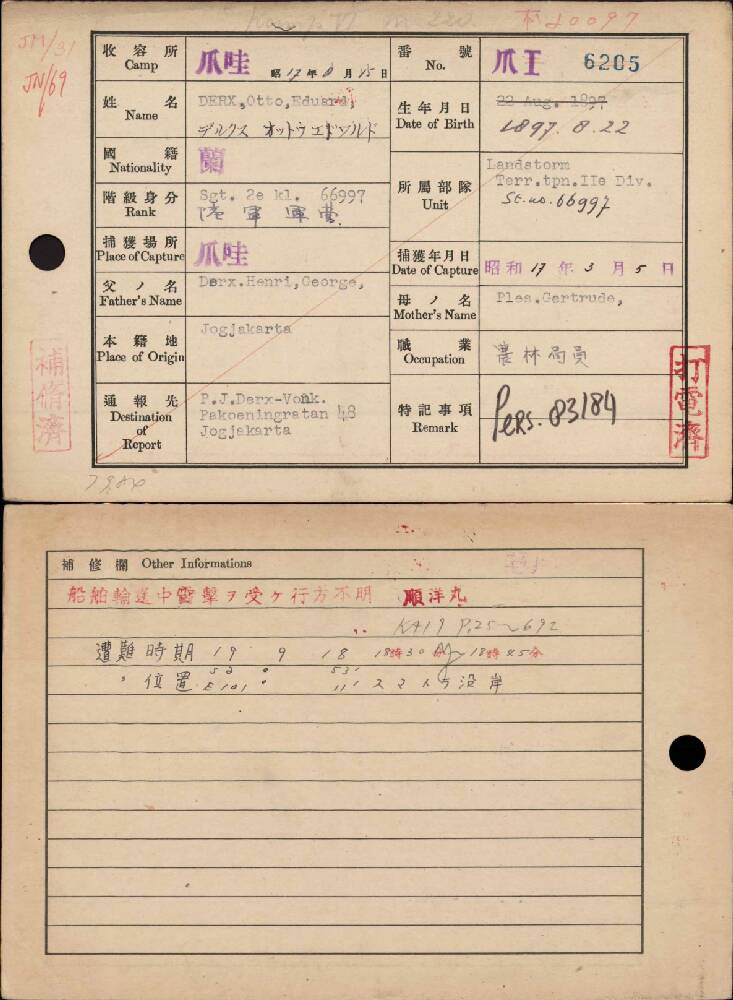 JM/31
JN/69
収容所
Camp
爪哇
昭 17 年 8 月 15 日
番號
No.
爪I 6205
姓名
Name
DERX,Otto,Eduard,
デルクス オットウ エドワルド
生年月日
Date of Birth
22 Aug. 1897
1897. 8. 22
國籍
Nationality
蘭
所屬部隊
Unit
Landstorm
Terr.tpn.IIe Div.
St.no. 66997
階級身分
Rank
Sgt. 2e kl. 66997
陸軍軍曹
捕獲場所
Place of Capture
爪哇
捕獲年月日
Date of Capture
昭和 17 年 3 月 5 日
父ノ名
Father's Name
Derx.Henri,George,
母ノ名
Mother's Name
Ples.Gertrude,
本籍地
Place of Origin
Jogjakarta
職業
Occupation
農林局員
通報先
Destination
of
Report
P.J.Derx-Vonk.
Pakoeningratan 48
Jogjakarta
特記事項
Remark
Pers. 83184
補脩濟
打電濟
補修欄 Other Informations
船舶輸送中雷撃ヲ受ケ行方不明 順洋丸
KA19 P.25~692
遭難時期 19 9 18 18時30分~18時45分
〃 位置 S 2° 53'
E 101° 11' スマトラ沿岸